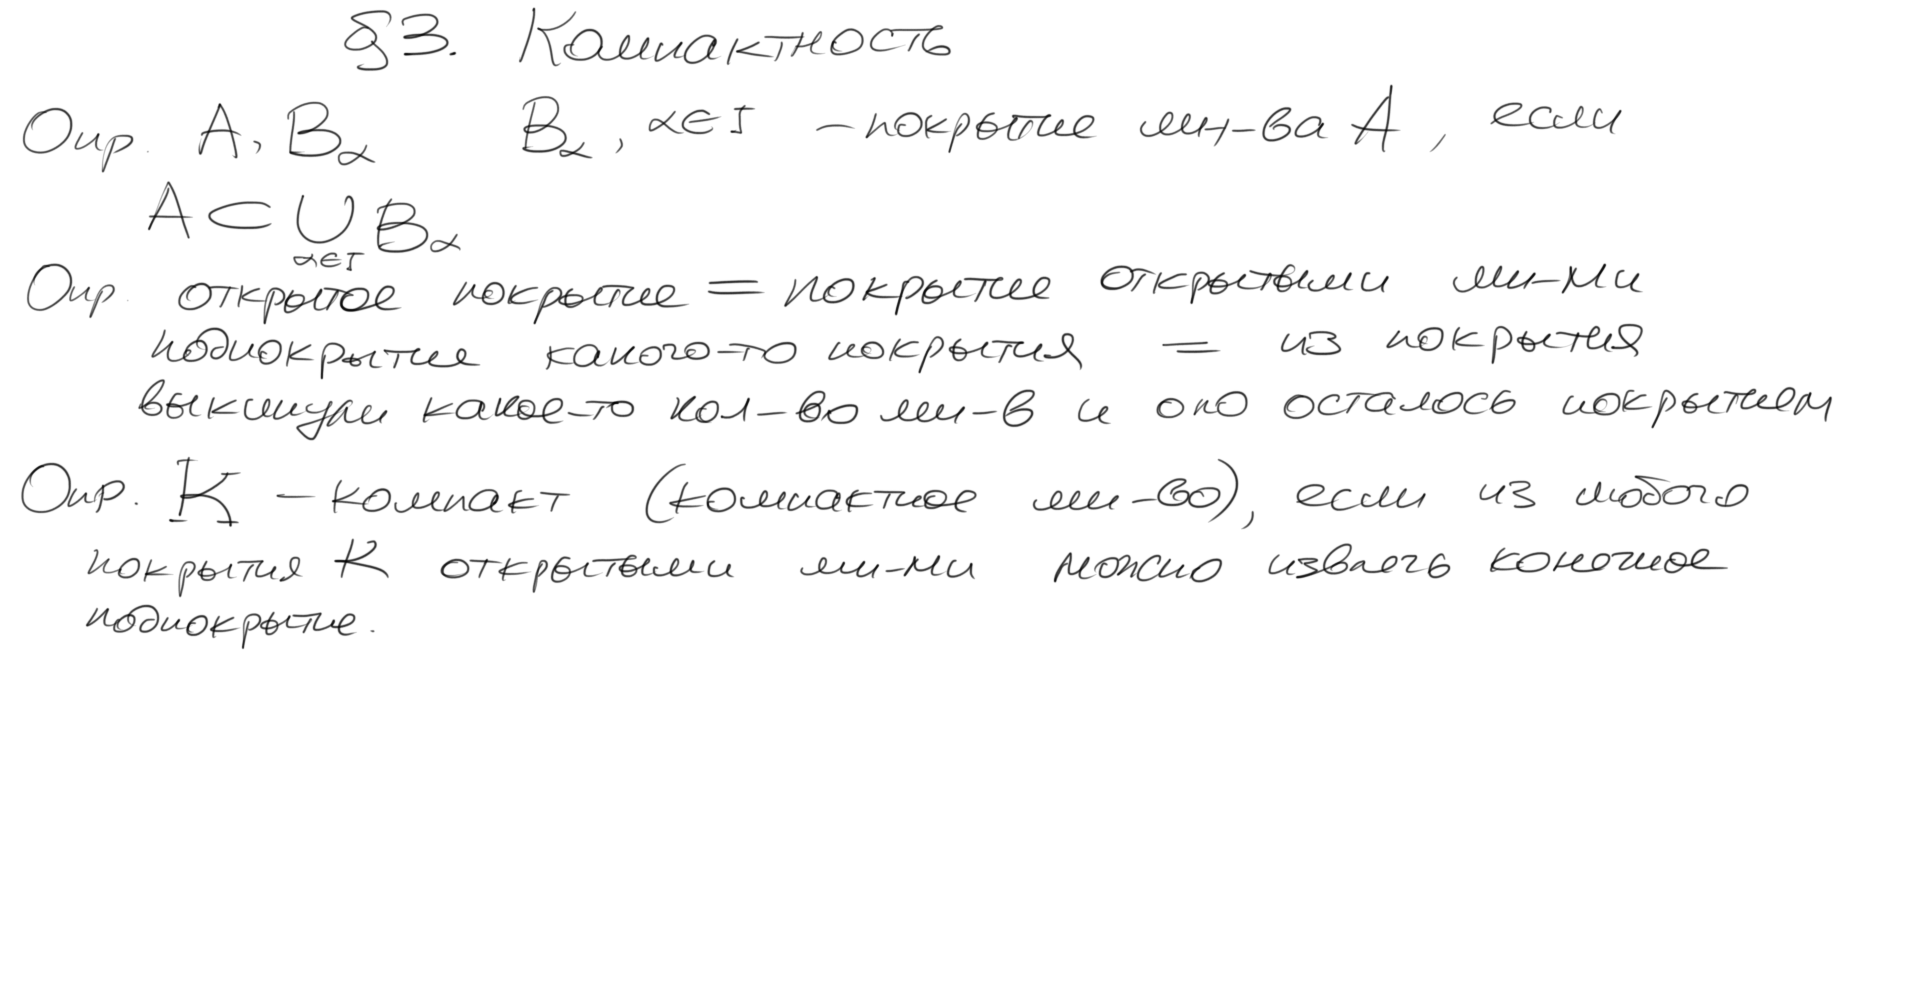 §3. Компактность
Опр. A, Bα Bα, α∈I – покрытие мн-ва A, если
A ⊂ ∪ Bα
α∈I
Опр. открытое покрытие = покрытие открытыми мн-ми
подпокрытие какого-то покрытия = из покрытия
выкинули какое-то кол-во мн-в и оно осталось покрытием
Опр. K – компакт (компактное мн-во), если из любого
покрытия K открытыми мн-ми можно извлечь конечное
подпокрытие.